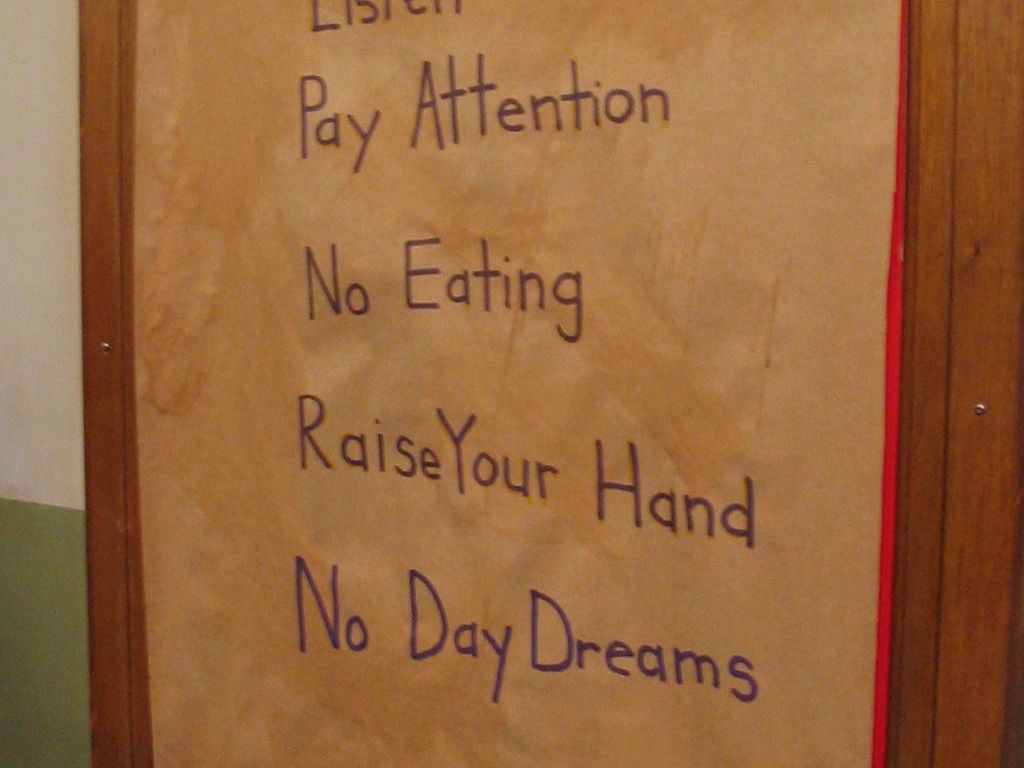 Listen
Pay Attention
No Eating
Raise Your Hand
No Day Dreams